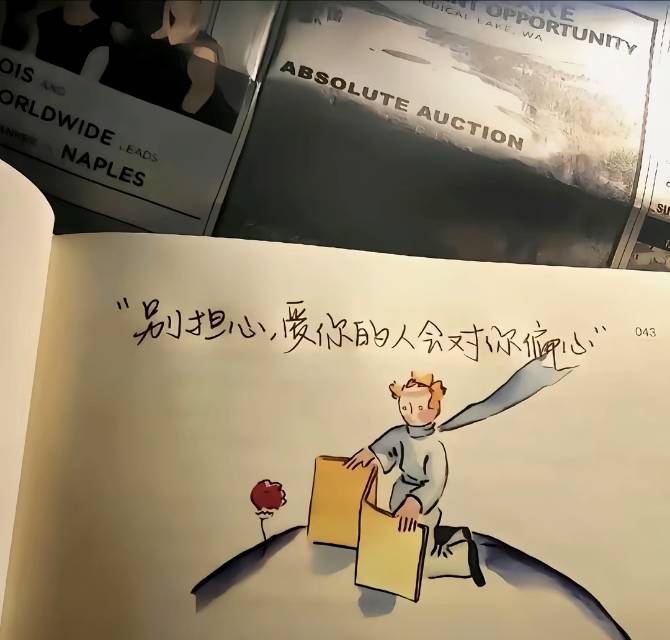 OIS AND
ORLDWIDE LEADS
NAPLES
OPPORTUNITY
MEDICAL LAKE, WA
ABSOLUTE AUCTION
"别担心,爱你的人会对你偏心"
043